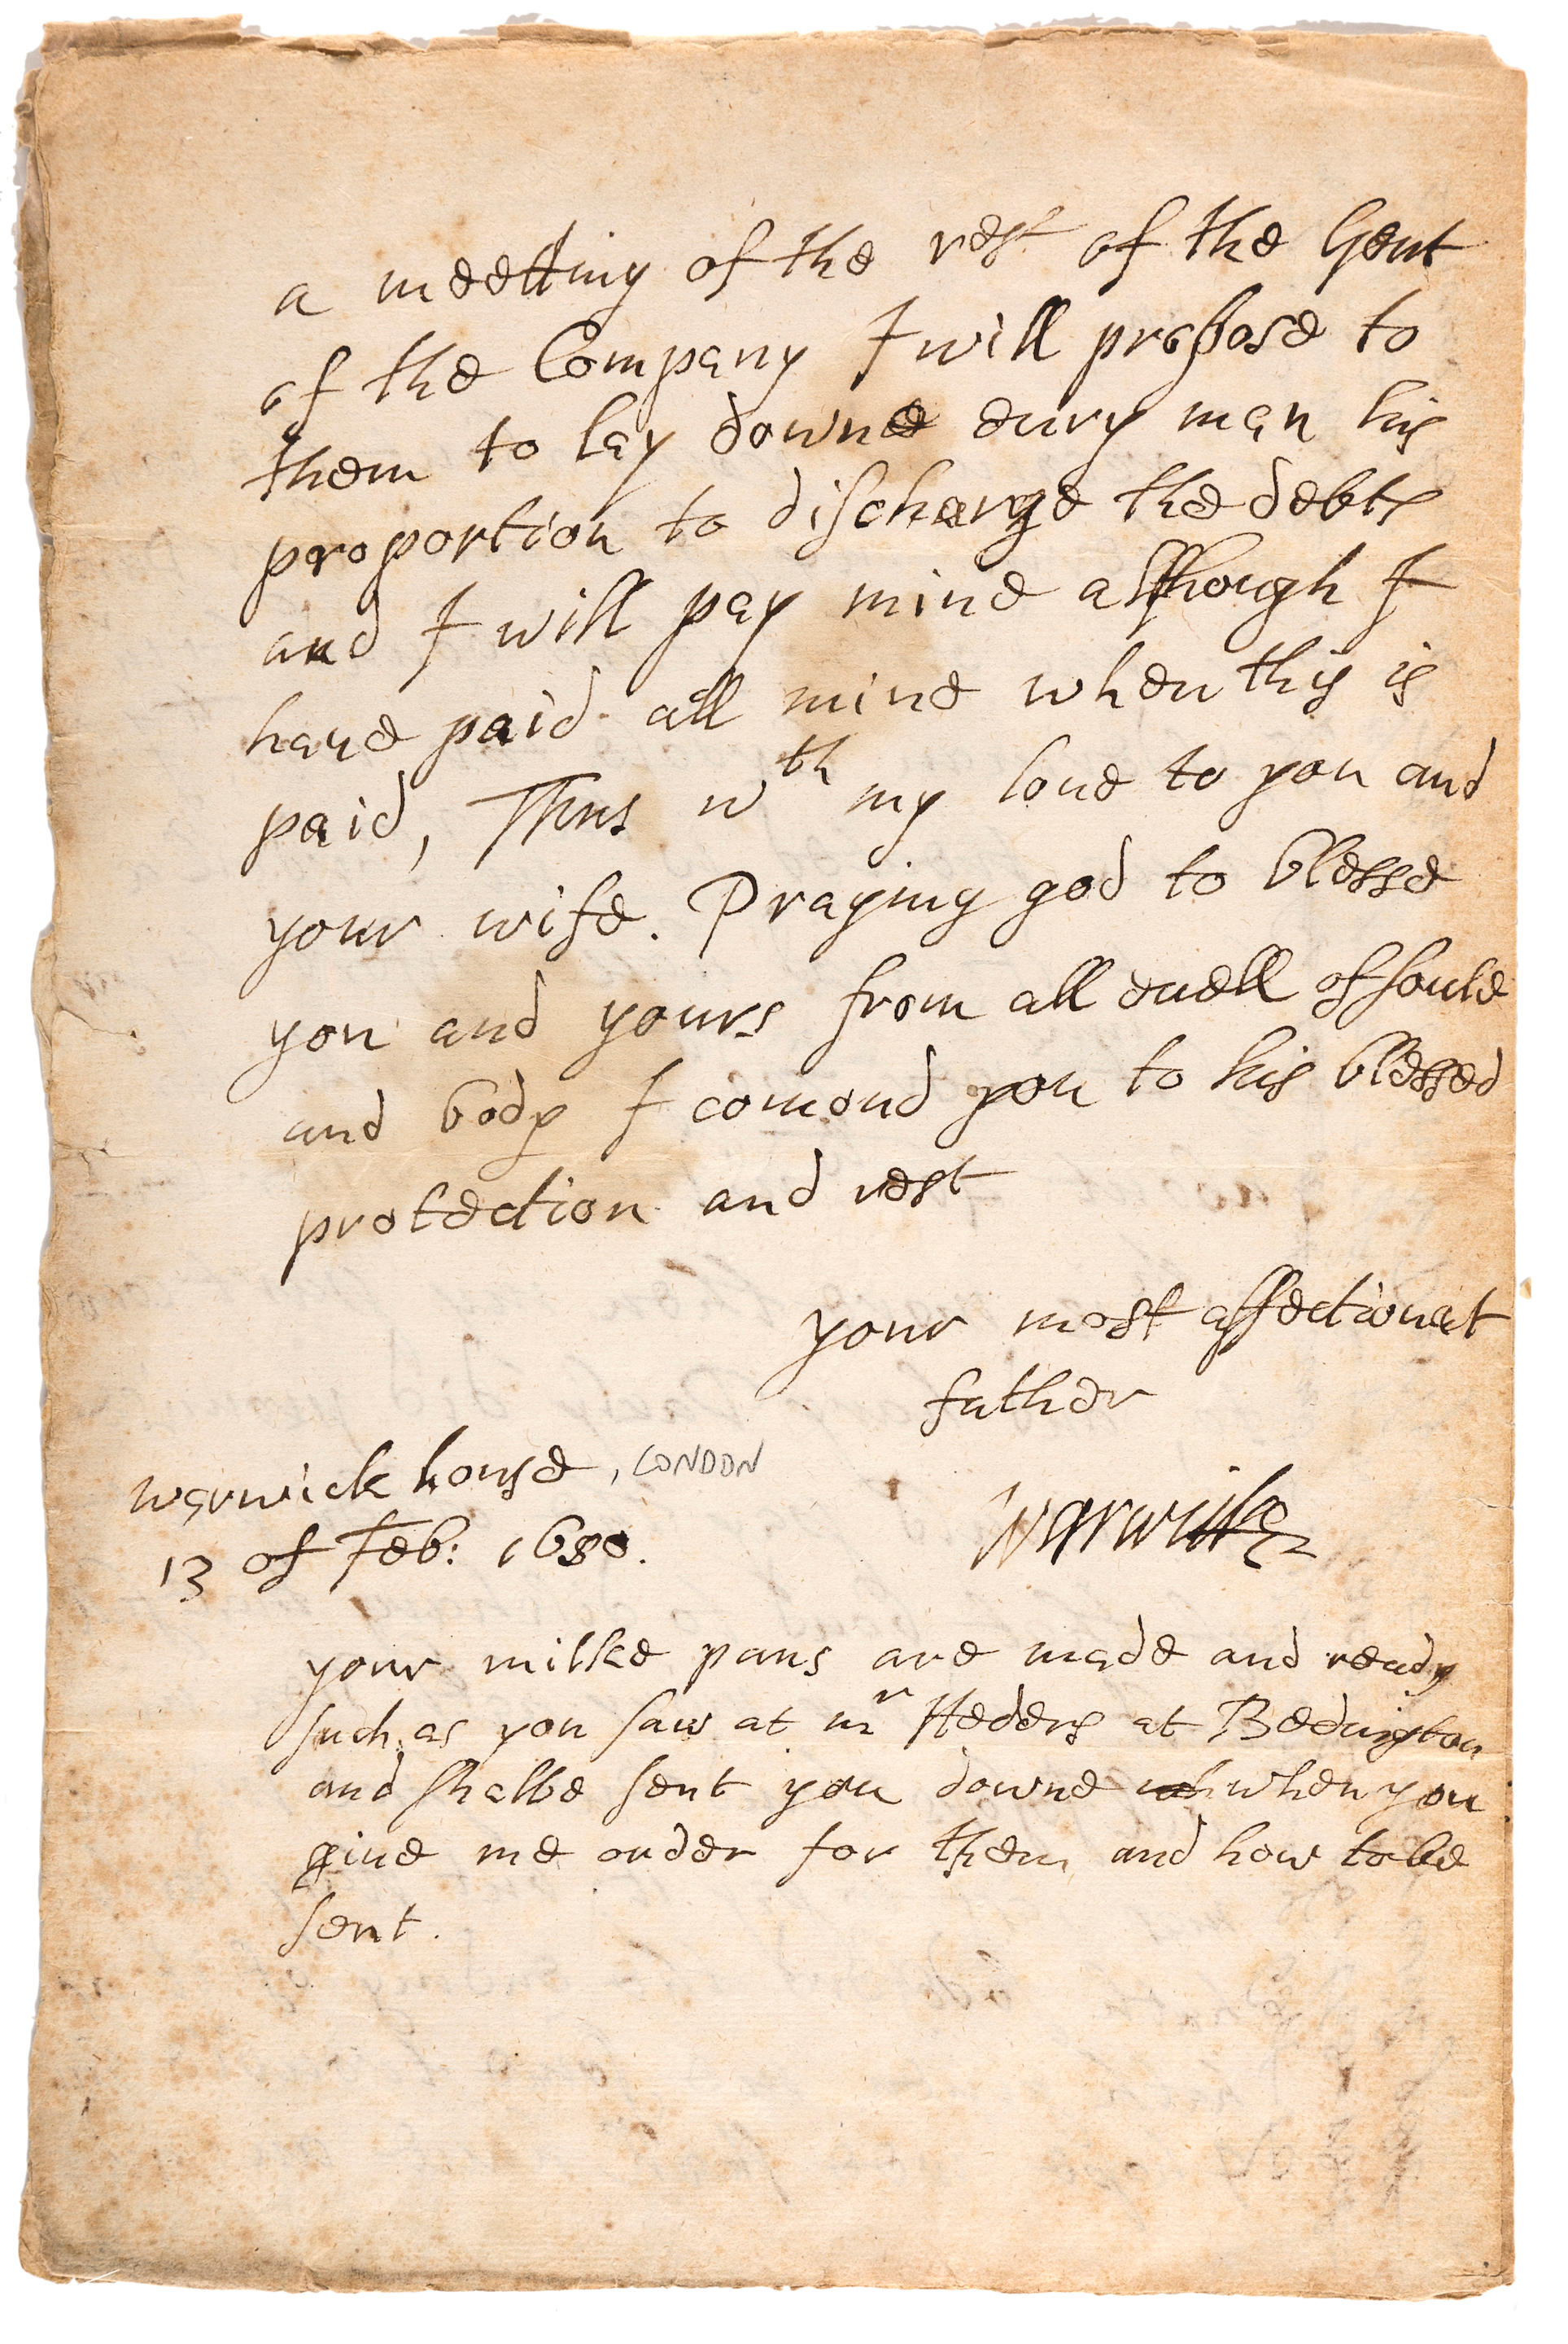 a meetting of the rest of the Gent
of the Company I will propose to
them to lay downe eury man his
proportion to discharge the debts
and I will pay mine although I
haue paid all mine when this is
paid, Thus wth my loue to you and
your wife. Praying god to blesse
you and yours from all euell of soule
and body I comend you to his blessed
protection and rest
your most affectionat
father
warwick house, LONDON
Warwicke
13 of Feb: 1630.
your milke pans are made and ready
such as you saw at mr Heders at Bedington
and shalbe sent you downe when you
giue me order for them and how to be
sent.